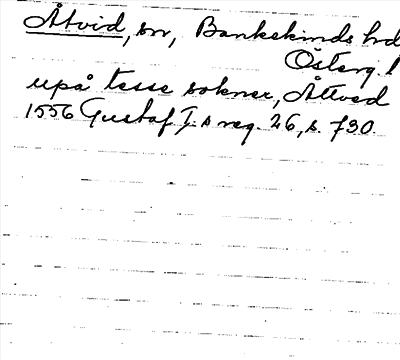 Åtvid, sn, Bankekinds hrd
Österg. l
upå tesse sokner, Åttved
1556 Gustaf I:s reg. 26, s. 730